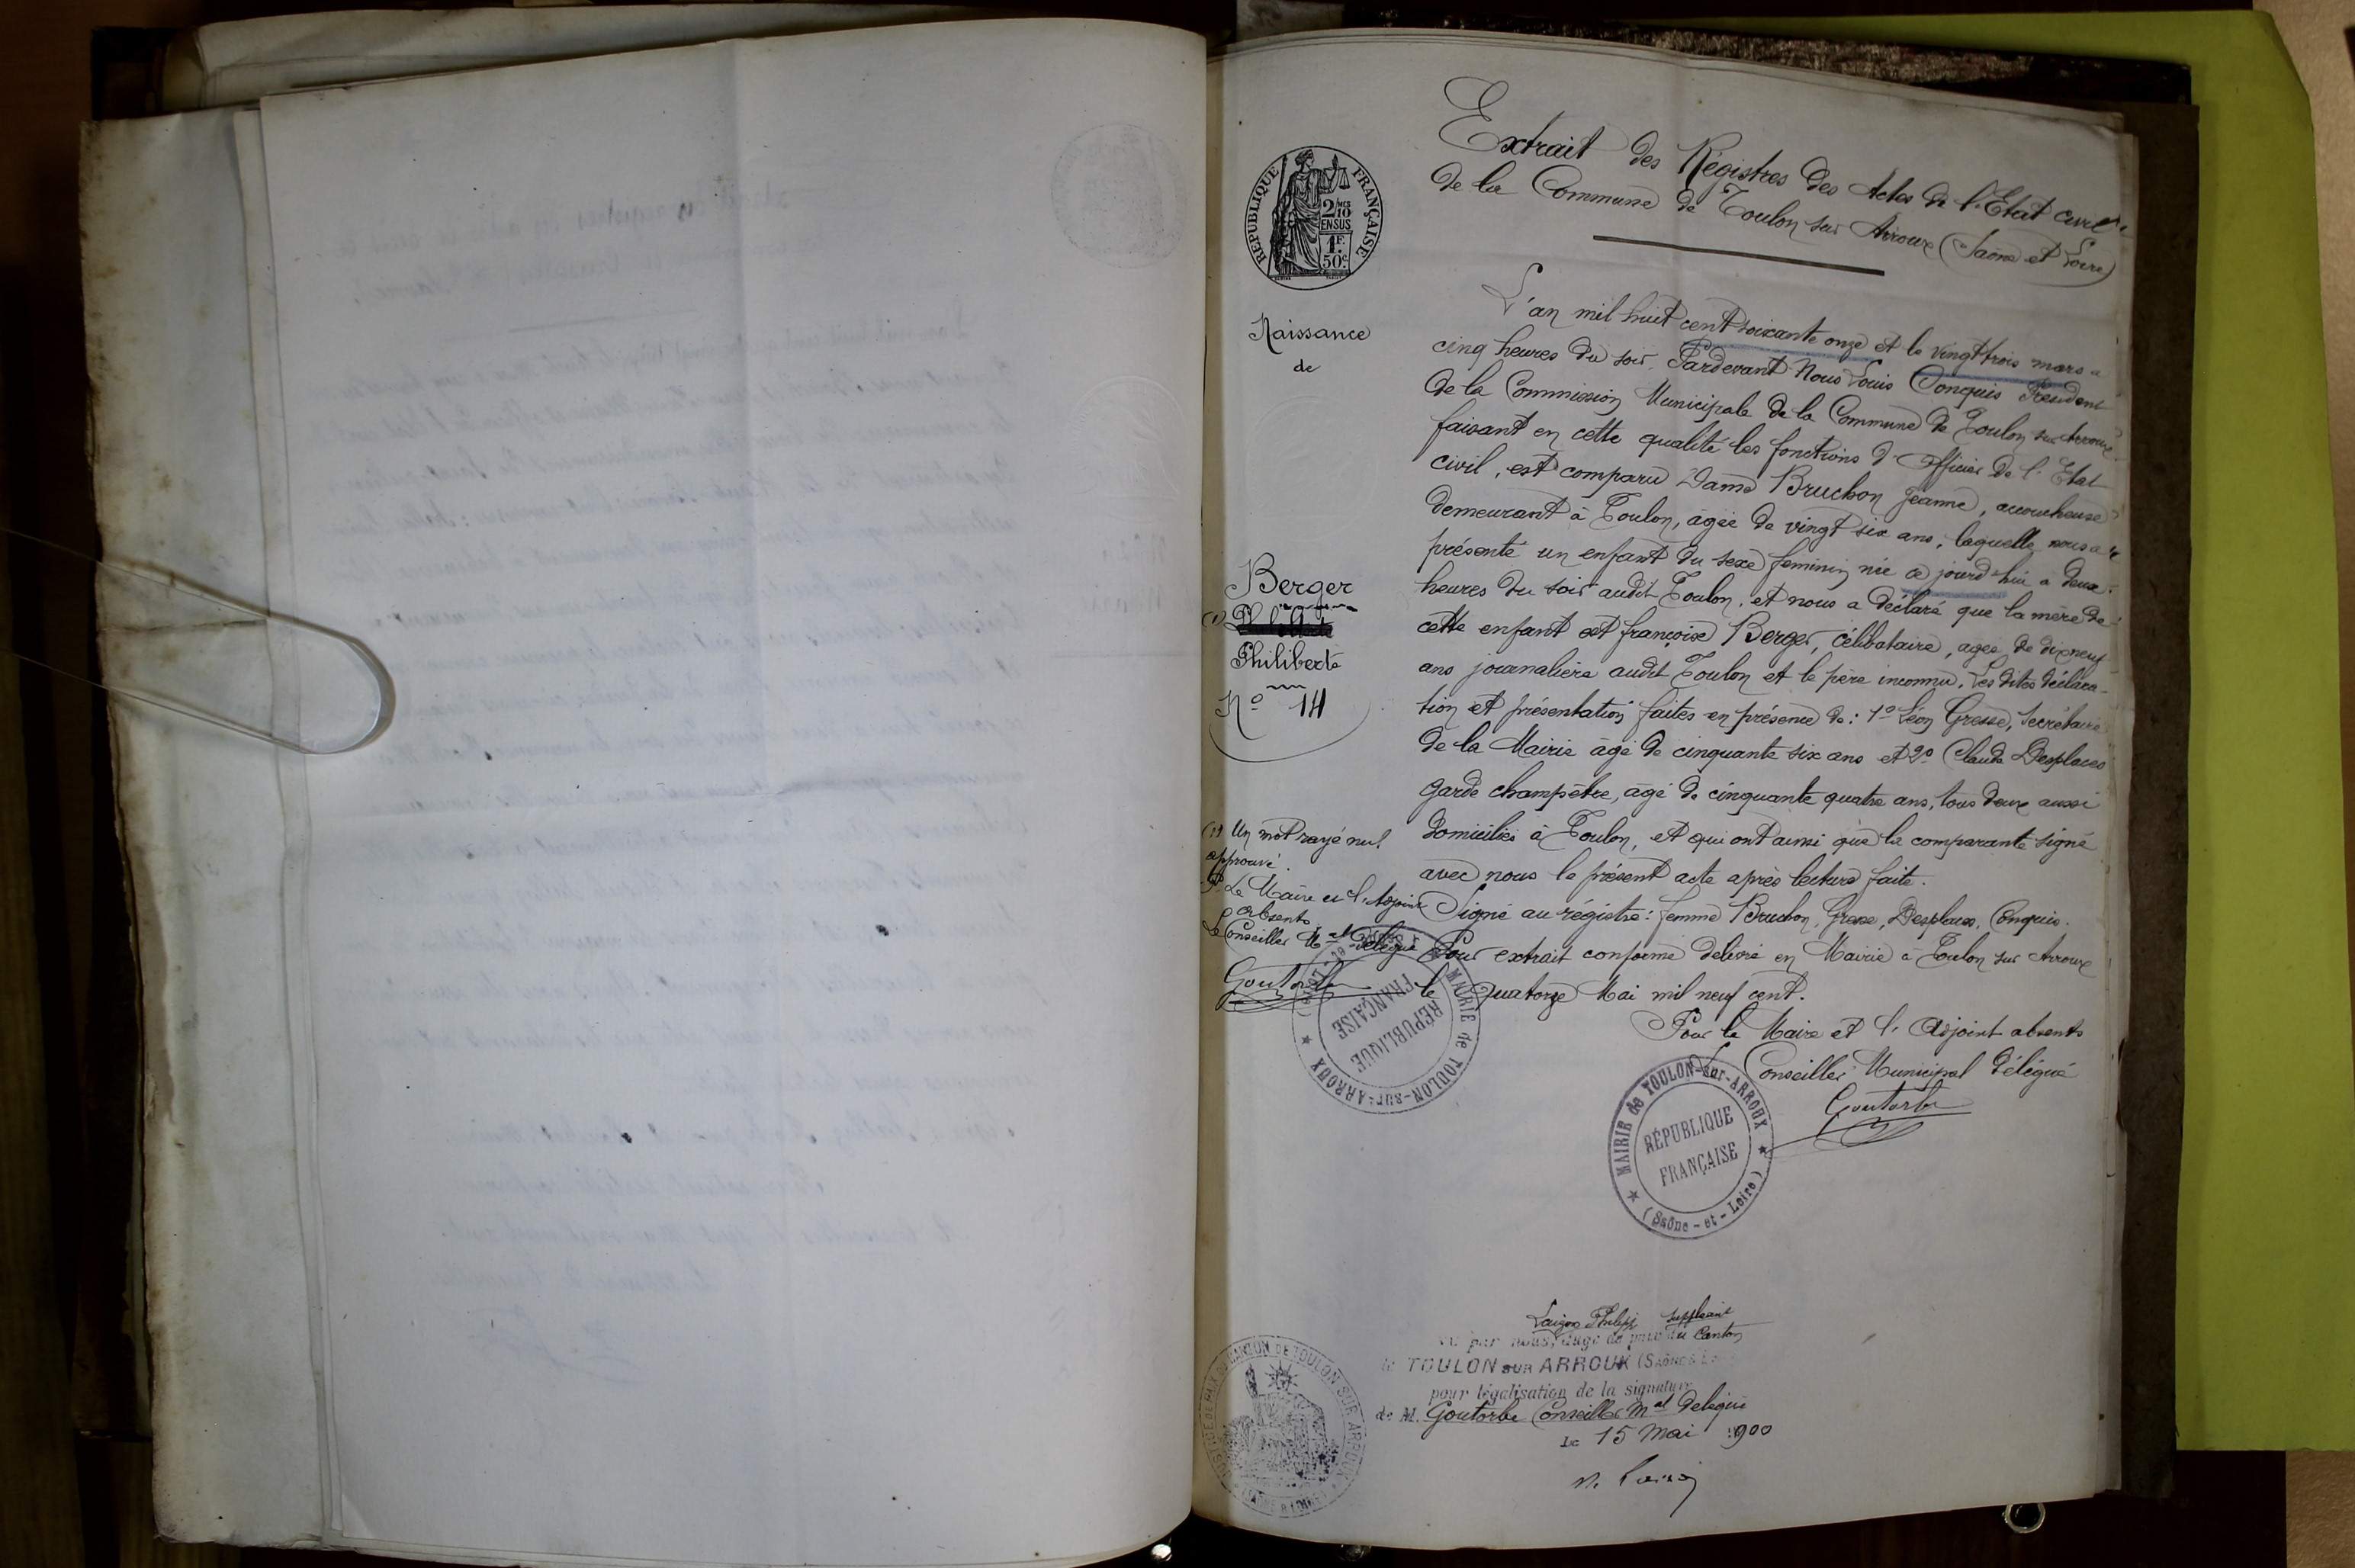 Extrait des Régistres des Actes de l'Etat civil
de la Commune de Toulon sur Arroux (Saône et Loire)
RÉPUBLIQUE FRANÇAISE
2/10
EN SUS
1F
50c
Naissance
de
Berger
(1)
Philiberte
No 14
L'an mil huit cent soixante onze et le vingt trois mars à
cinq heures du soir, Pardevant Nous Louis Conquis Président
de la Commission Municipale de la Commune de Toulon sur Arroux
faisant en cette qualité les fonctions d'officier de l'Etat
civil, est comparu Dame Bruchon Jeanne, accoucheuse
demeurant à Toulon, âgée de vingt six ans, laquelle nous a
présenté un enfant du sexe feminin née ce jourd'hui à deux
heures du soir audit Toulon, et nous a déclaré que la mère de
cette enfant est françoise Berger, célibataire, agée de dix neuf
ans journalière audit Toulon et le père inconnu. Les dites déclara-
tion et présentation faites en présence de: 1º Léon Grosse, Secrétaire
de la Mairie âgé de cinquante six ans et 2º Claude Desplaces
garde champêtre, âgé de cinquante quatre ans, tous deux aussi
domiciliés à Toulon, et qui ont ainsi que la comparante signé
avec nous le présent acte après lecture faite.
Signé au régistre: femme Bruchon, Grosse, Desplaces, Conquis.
Pour extrait conforme délivré en Mairie à Toulon sur Arroux
le Quatorze Mai mil neuf cent.
(1) Un mot rayé nul
approuvé
Pr Le Maire et l'Adjoint
absents
Le Conseiller Mal Délégué
Goutorbe
MAIRIE de TOULON-sur-ARROUX
(Saône-et-Loire)
RÉPUBLIQUE
FRANÇAISE
Pour le Maire et l'Adjoint absents
Le Conseiller Municipal délégué
Goutorbe
MAIRIE de TOULON-sur-ARROUX
RÉPUBLIQUE
FRANÇAISE
(Saône-et-Loire)
suppléant
Vu par nous, Juge de paix du Canton
de TOULON SUR ARROUX (SAÔNE & L
pour légalisation de la signature
de M. Goutorbe Conseiller Mal Delégué
Le 15 Mai 1900
JUSTICE DE PAIX DU CANTON DE TOULON SUR ARROUX
(SAÔNE & LOIRE)